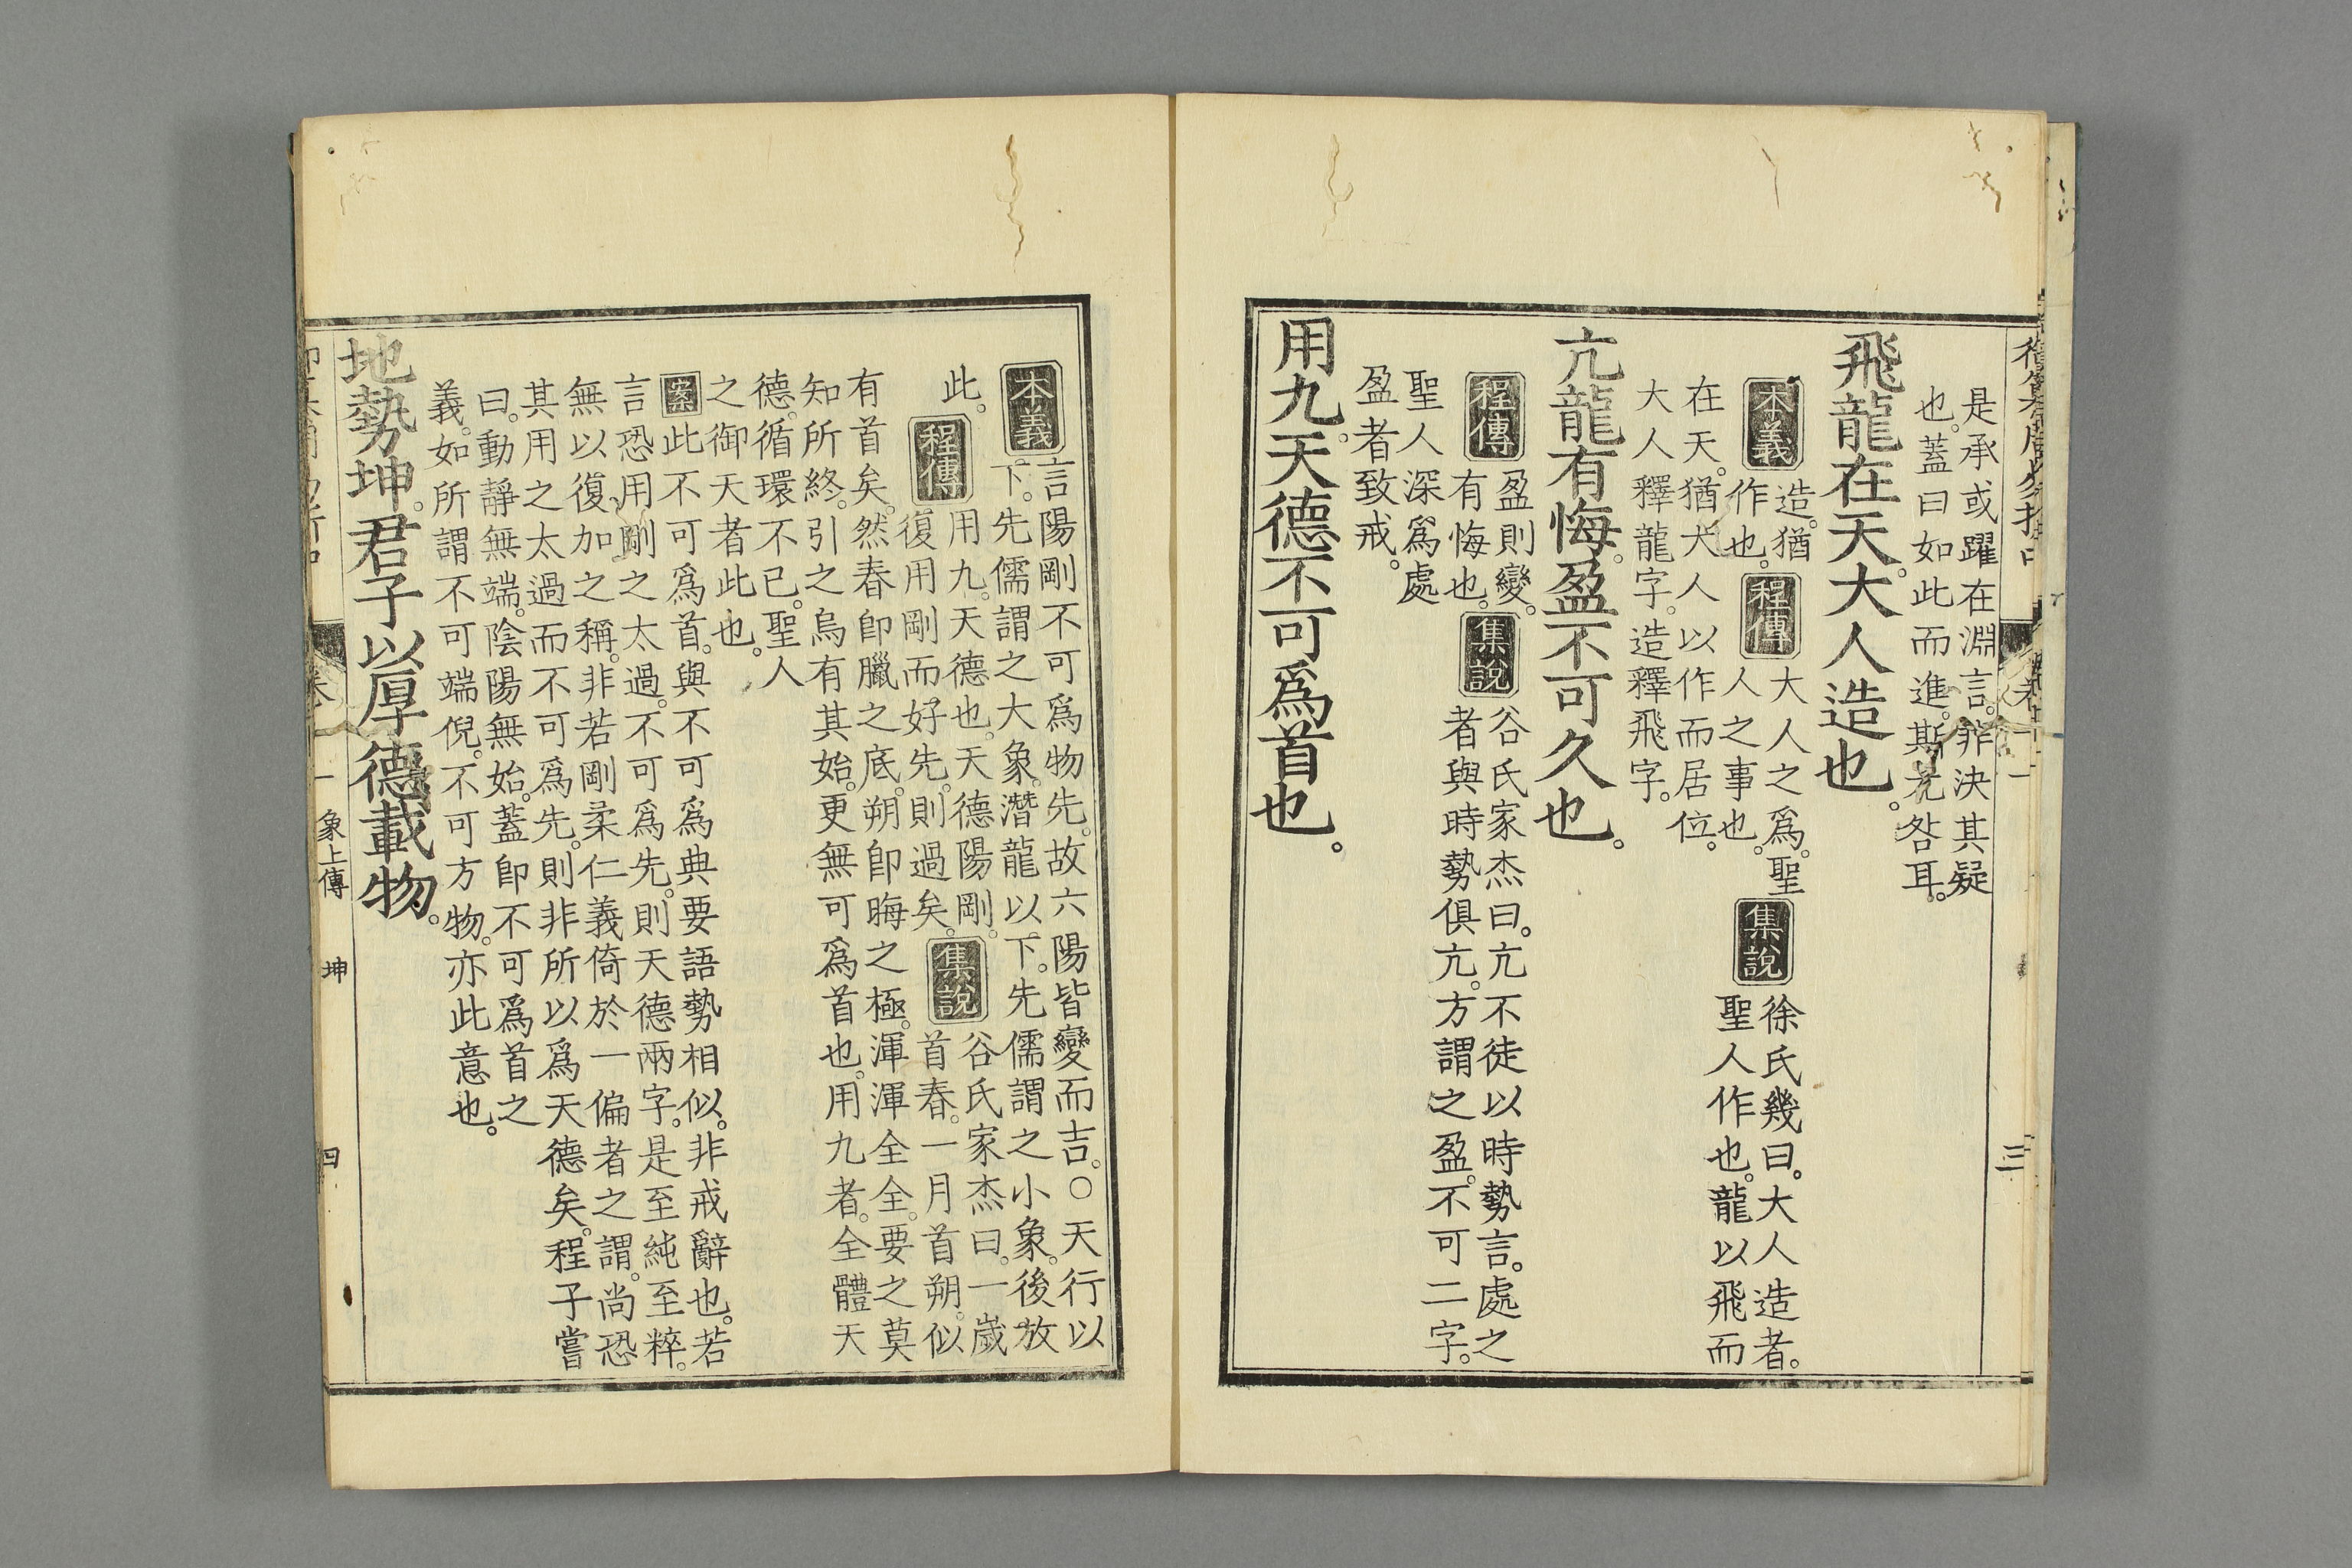 是承或躍在淵言。非決其疑
也。蓋曰如此而進。斯无咎耳。
飛龍在天。大人造也。
本義
造。猶
作也。
程傳
大人之爲。聖
人之事也。
集說
徐氏幾曰。大人造者。
聖人作也。龍以飛而
在天。猶大人以作而居位。
大人釋龍字。造釋飛字。
亢龍有悔。盈不可久也。
程傳
盈則變。
有悔也。
集說
谷氏家杰曰。亢不徒以時勢言。處之
者與時勢俱亢。方謂之盈。不可二字。
聖人深爲處
盈者致戒。
用九。天德不可爲首也。
三
本義
言陽剛不可爲物先。故六陽皆變而吉。○天行以
下。先儒謂之大象。潛龍以下。先儒謂之小象。後放
此。
程傳
用九。天德也。天德陽剛。
復用剛而好先。則過矣。
集說
谷氏家杰曰。一歲
首春。一月首朔。似
有首矣。然春卽臘之底。朔卽晦之極。渾渾全全。要之莫
知所終。引之烏有其始。更無可爲首也。用九者。全體天
德。循環不已。聖人
之御天者此也。
案此不可爲首。與不可爲典要語勢相似。非戒辭也。若
言恐用剛之太過。不可爲先。則天德兩字。是至純至粹。
無以復加之稱。非若剛柔仁義倚於一偏者之謂。尚恐
其用之太過而不可爲先。則非所以爲天德矣。程子嘗
曰。動靜無端。陰陽無始。蓋卽不可爲首之
義。如所謂不可端倪。不可方物。亦此意也。
地勢坤。君子以厚德載物。
象上傳 坤 四